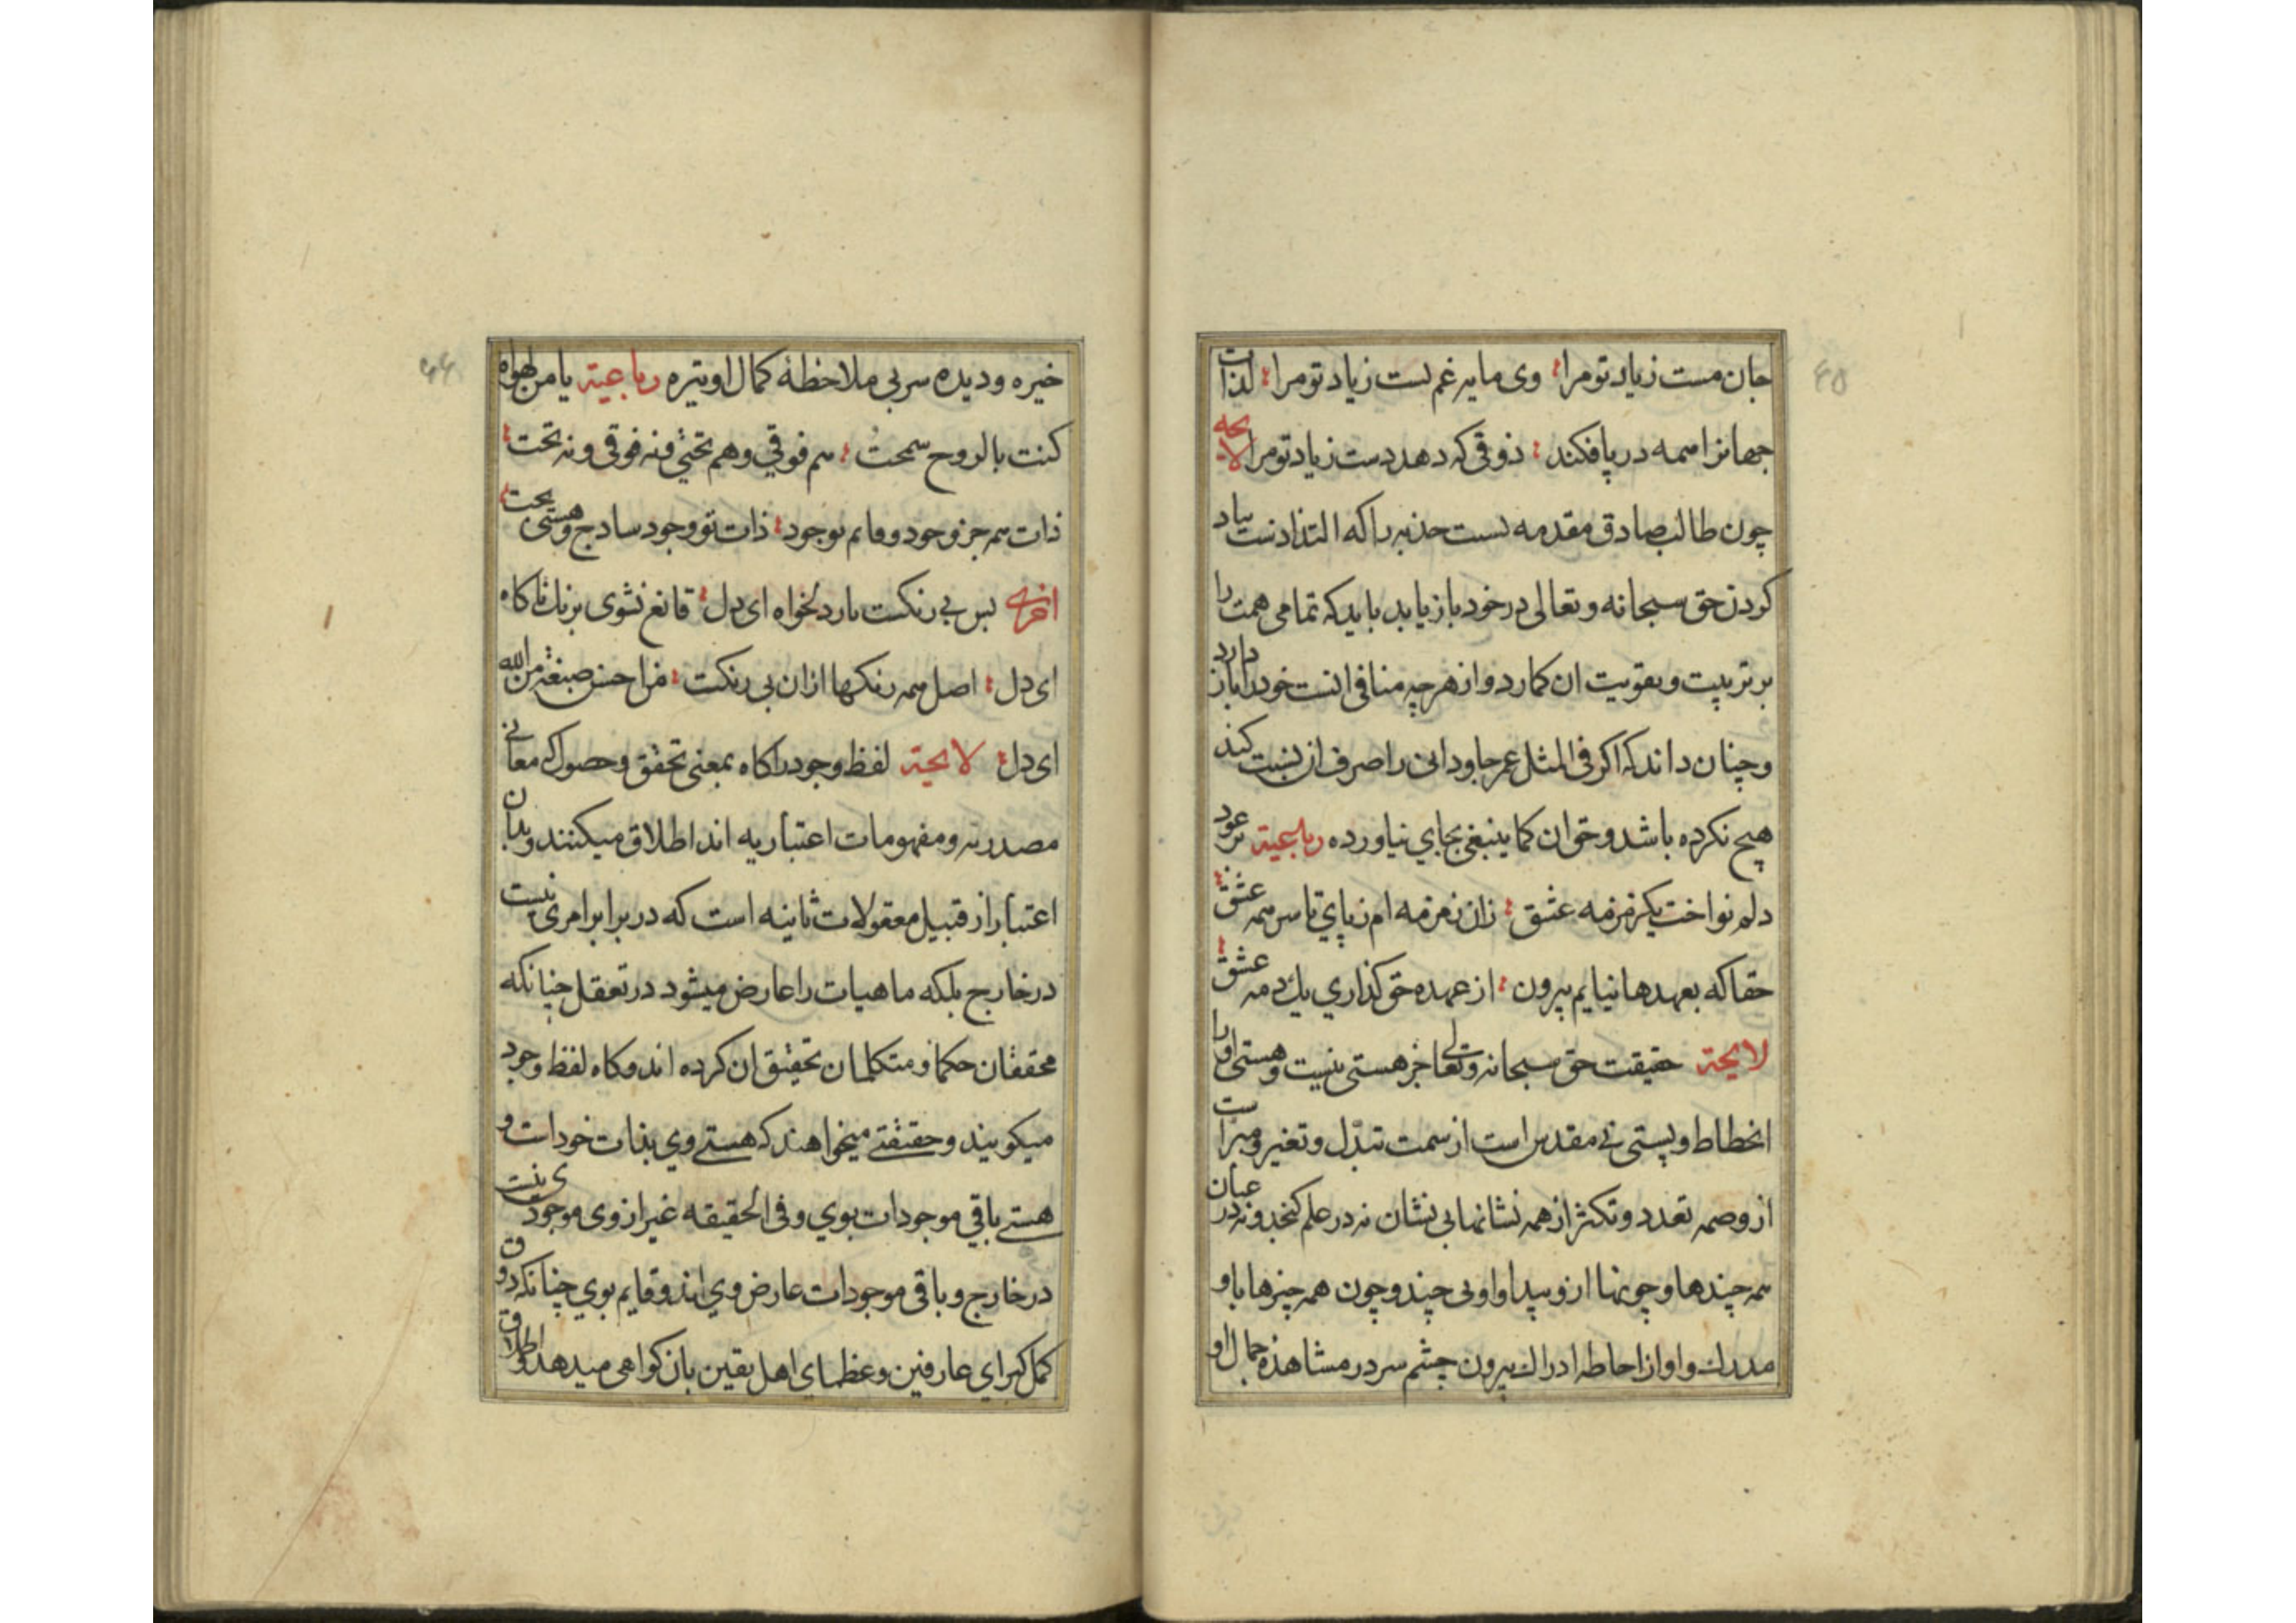 جان مست زیاد تو مرا وی مایه غم پست زیاد تو مرا لذات
جهانرا همه در پا فکند ذوقی که دهد دست زیاد تو مرا لایحه
چون طالب صادق مقدمه نسبت جذبه را که التذاذست بیاد
کردن حق سبحانه و تعالی در خود باز یابد باید که تمامی همت را
بر تربیت و تقویت ان کمارد و از هرچه منافی انست خود را باز دارد
و چنان داند که اکر فی المثل عمر جاودانی را صرف ان نسبت کند
هیچ نکرده باشد و حق ان کما ینبغی بجای نیاورده رباعیة بر عود
دلم نواخت یک زمزمه عشق زان زمزمه ام ز پای تا سر همه عشق
حقا که بعهدها نیایم بیرون از عهده حق کذاری یك دمه عشق
لایحة حقیقت حق سبحانه و تعالی جز هستی نیست و هستی او را
انحطاط و پستی نی مقدس است از سمت تبدّل و تغیر و مبراست
از وصمه تعدد و تکثر از همه نشانها بی نشان نه در علم کنجد و نه در عیان
همه چندها و چونها ازو پیدا و او بی چند و چون همه چیزها باو
مدرك و او از احاطه ادراك بیرون چشم سر در مشاهده جمال او
خیره و دیده سر بی ملاحظهٔ کمال او تیره رباعیة یا من لهواه
کنت بالروح سمحت هم فوقی و هم تحتی و نه فوقی و نه تحت
ذات همه جز وجود و قایم بوجود ذات تو وجود ساذج و هستی بحت
اخری بس بی رنکست یار دلخواه ای دل قانع نشوی برنك ناکاه
ای دل اصل همه رنکها ازان بی رنکست من احسن صبغة من الله
ای دل لایحة لفظ وجود را کاه بمعنی تحقق و حصول که معانی
مصدریه و مفهومات اعتباریه اند اطلاق میکنند و بدان
اعتبار از قبیل معقولات ثانیه است که در برابر امری نیست
در خارج بلکه ماهیات را عارض میشود در تعقل چنانکه
محققان حکما و متکلمان تحقیق ان کرده اند و کاه لفظ وجود
میکویند و حقیقتی میخواهند که هستی وی بذات خود است و
هستی باقی موجودات بوی و فی الحقیقه غیر از وی موجودی نیست
در خارج و باقی موجودات عارض وی اند و قایم بوی چنانکه ذوق
کمل کبرای عارفین و عظمای اهل یقین بان کواهی میدهد و اطلاق